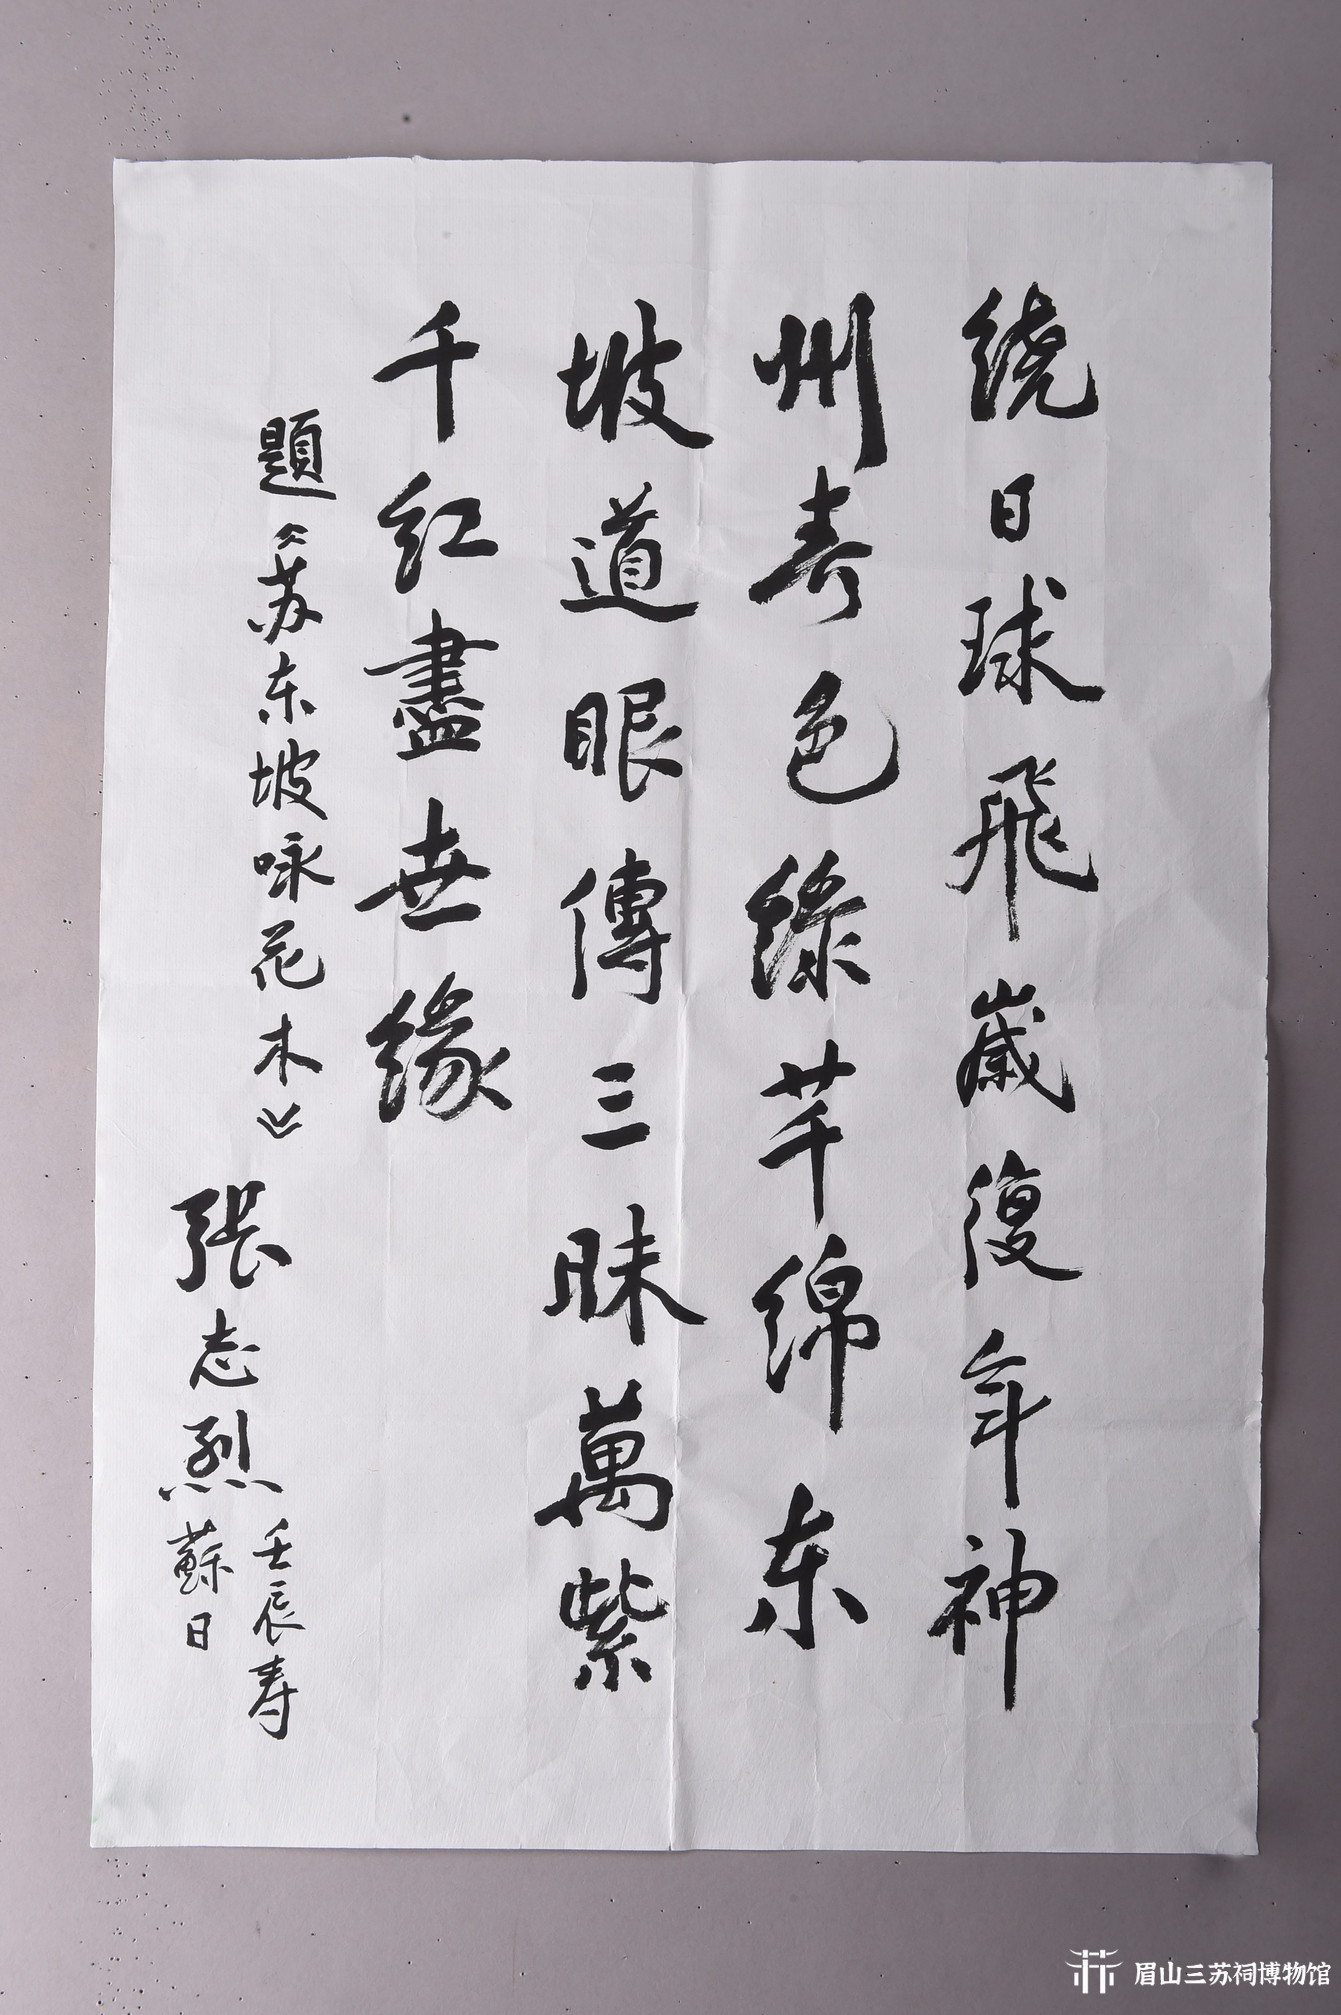 绕日球飛歲復年神
州春色綠芊绵东
坡道眼傳三昧萬紫
千红盡世缘
題《苏东坡咏花木》
張志烈
壬辰寿
蘇日
眉山三苏祠博物馆